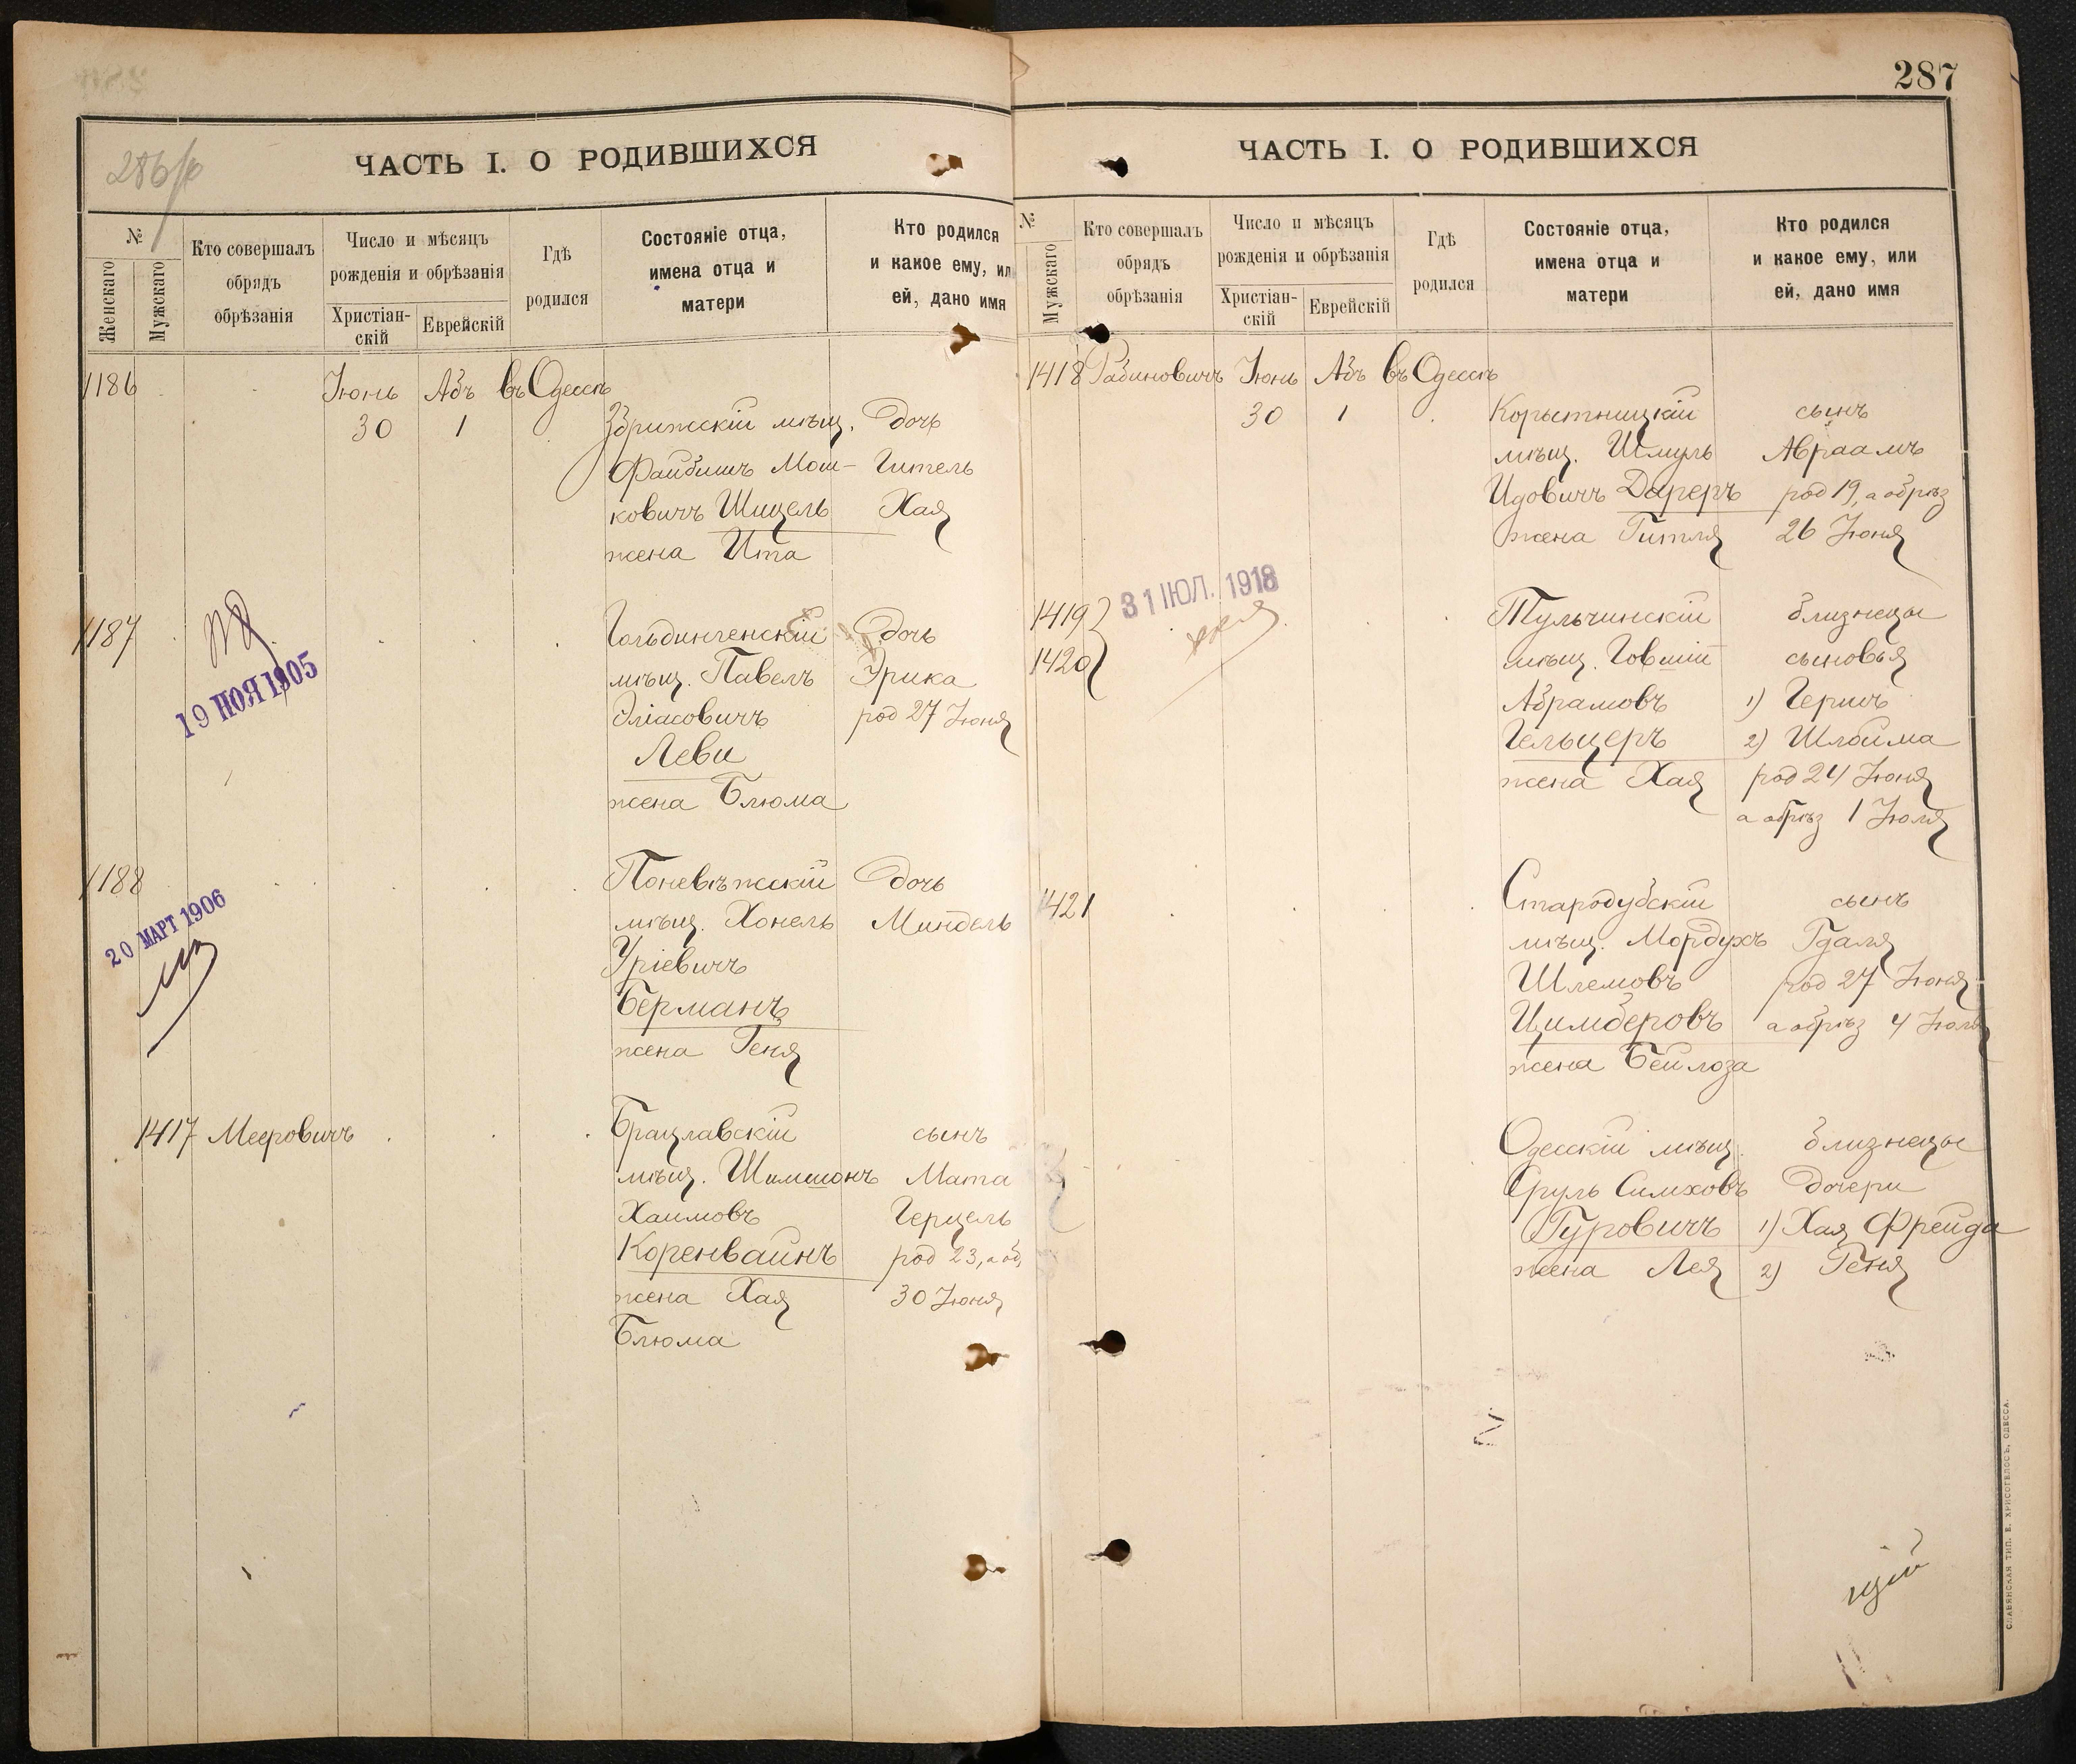 286/б
ЧАСТЬ I. О РОДИВШИХСЯ
№
Женскаго
Мужскаго
Кто совершалъ
обрядъ
обрѣзанія
Число и мѣсяцъ
рожденія и обрѣзанія
Христіан-
скій
Еврейскій
Гдѣ
родился
Состояніе отца,
имена отца и
матери
Кто родился
и какое ему, ил
ей, дано имя
1186 Іюнь Абъ въ Одессѣ
30 1 Збрижскій мѣщ. Дочь
Файбишъ Мош- Гитель
ковичъ Шицель Хая
жена Ита
1187 Гольдингенскій Дочь
мѣщ. Павелъ Эрика
Эліасовичъ род 27 Іюня
Леви
жена Блюма
19 НОЯ 1905
1188 Поневѣжскій Дочь
мѣщ. Хонель Миндель
Уріевичъ
Берманъ
жена Геня
20 МАРТ 1906
1417 Мееровичъ Брацлавскій сынъ
мѣщ. Шимшонъ Мата
Хаимовъ Герцель
Коренвайнъ род 23, а об,
жена Хая 30 Іюня
Блюма
287
ЧАСТЬ I. О РОДИВШИХСЯ
№
Мужскаго
Кто совершалъ
обрядъ
обрѣзанія
Число и мѣсяцъ
рожденія и обрѣзанія
Христіан-
скій
Еврейскій
Гдѣ
родился
Состояніе отца,
имена отца и
матери
Кто родился
и какое ему, или
ей, дано имя
1418 Рабиновичъ Іюнь Абъ въ Одессѣ
30 1 Корыстницкій сынъ
мѣщ. Шмуль Авраамъ
Идовичъ Дареръ род 19, а обрѣз
жена Гитля 26 Іюня
31 ІЮЛ. 1918
1419 Тульчинскій близнецы
1420 мѣщ. Говшій сыновья
Абрамовъ 1) Гершъ
Гельцеръ 2) Шлойма
жена Хая род 24 Іюня
а обрѣз 1 Іюля
1421 Стародубскій сынъ
мѣщ. Мордухъ Гдаля
Шлемовъ род 27 Іюня
Цимберовъ а обрѣз 4 Іюля
жена Бейлоза
Одесскій мѣщ. близнецы
Сруль Симховъ Дочери
Гуровичъ 1) Хая Фрейда
жена Лея 2) Геня
СЛАВЯНСКАЯ ТИП. Е. ХРИСОГЕЛОСЪ, ОДЕССА.